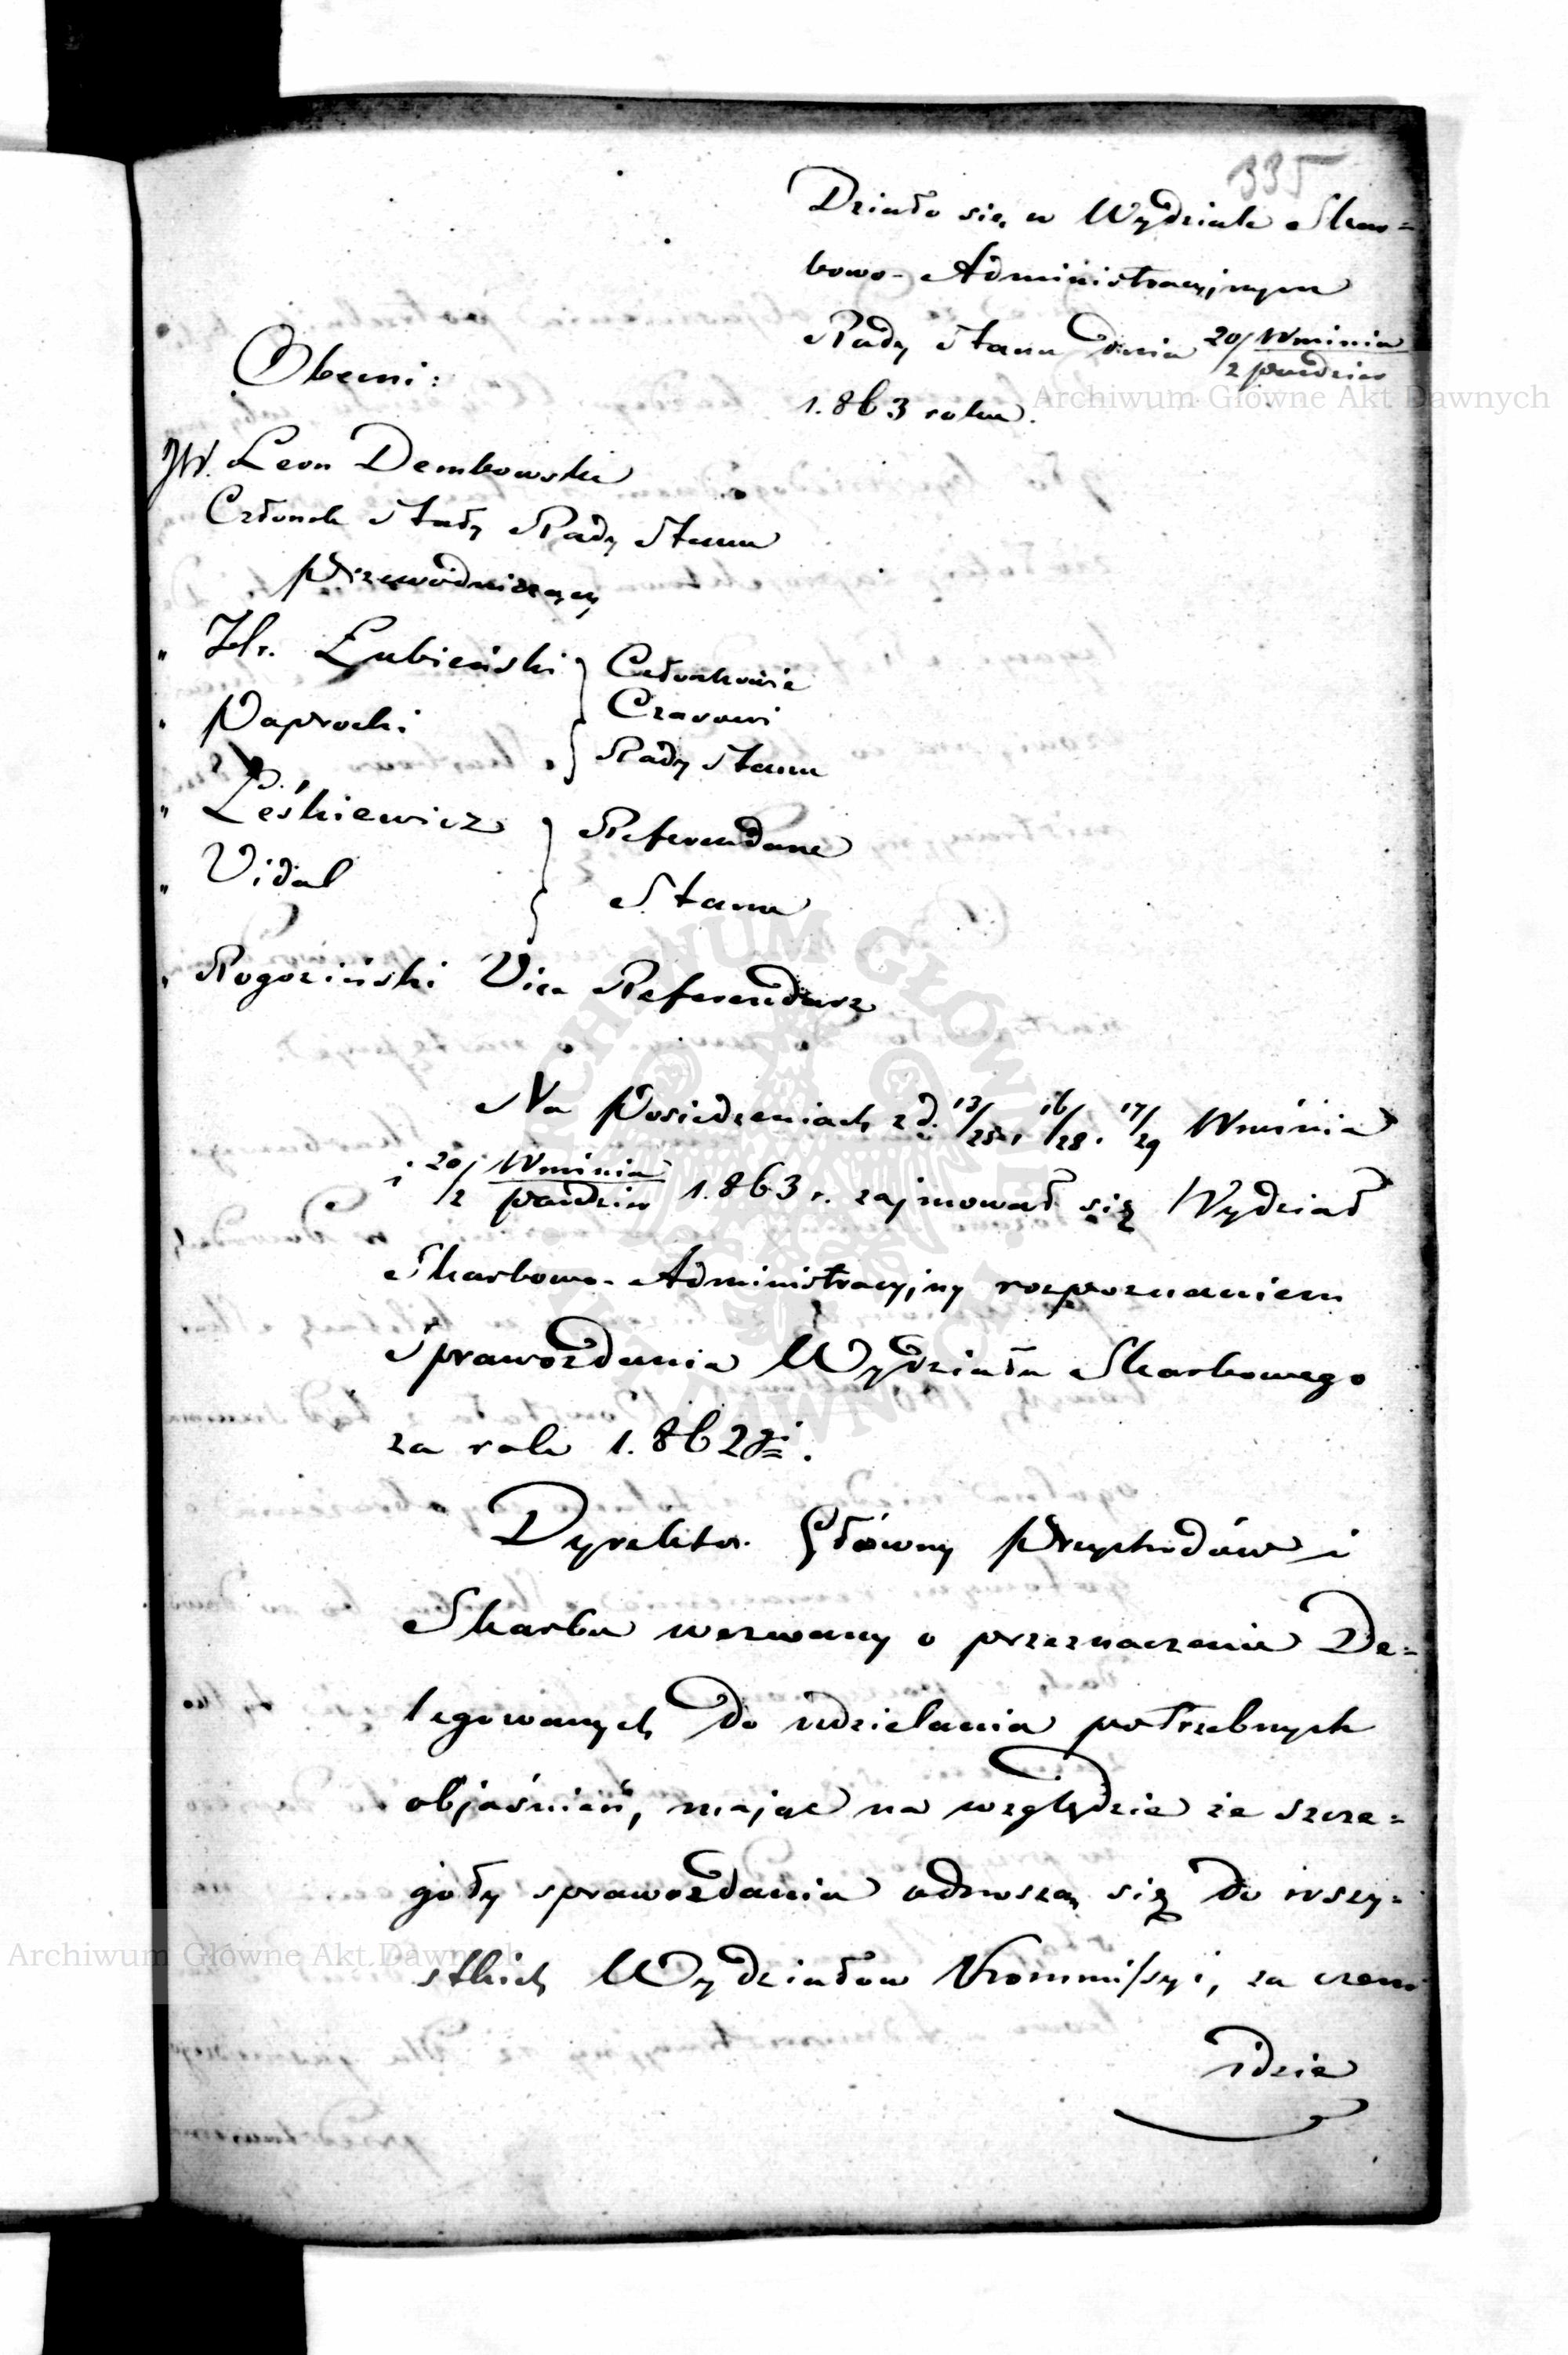 335
Działo się w Wydziale Skar=
bowo-Administracyjnym
Rady Stanu dnia 20/2 Wrninia/paździer
1.863 roku.
Obecni:
JW. Leon Dembowski
Członek Stały Rady Stanu
przewodniczący
" Hr. Łubieński } Członkowie
" Paprocki } Czasowi
Rady Stanu
" Leśkiewicz } Referendarze
" Vidal } Stanu
" Rogoziński Vice Referendarz
Na Posiedzeniach z d. 13/25, 16/28. 17/29 Wrninia
i 20/2 Wrninia/paździer 1.863 r. zajmował się Wydział
Skarbowo-Administracyjny rozpoznaniem
Sprawozdania Wydziału Skarbowego
za rok 1.862gi.
Dyrektor Główny Przychodów i
Skarbu wezwany o przeznaczenie De=
legowanych do udzielania potrzebnych
objaśnień, mając na względzie że szcze=
góły sprawozdania odnoszą się do wszy=
stkich Wydziałów Kommissyi, za czem
idzie
Archiwum Główne Akt Dawnych
Archiwum Główne Akt Dawnych
ARCHIWUM GŁÓWNE AKT DAWNYCH